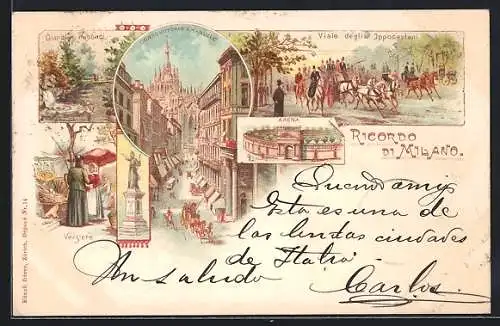 Giardini Pubblici
CORSO VITTORIO EMANUELE
Viale degli Ippocastani
ARENA
RICORDO
DI MILANO.
Verziere
Künzli frères, Zürich, Déposé No. 14
Querid amig
Esta es una de
las lindas ciudades
de Italia
Un saludo
Carlos